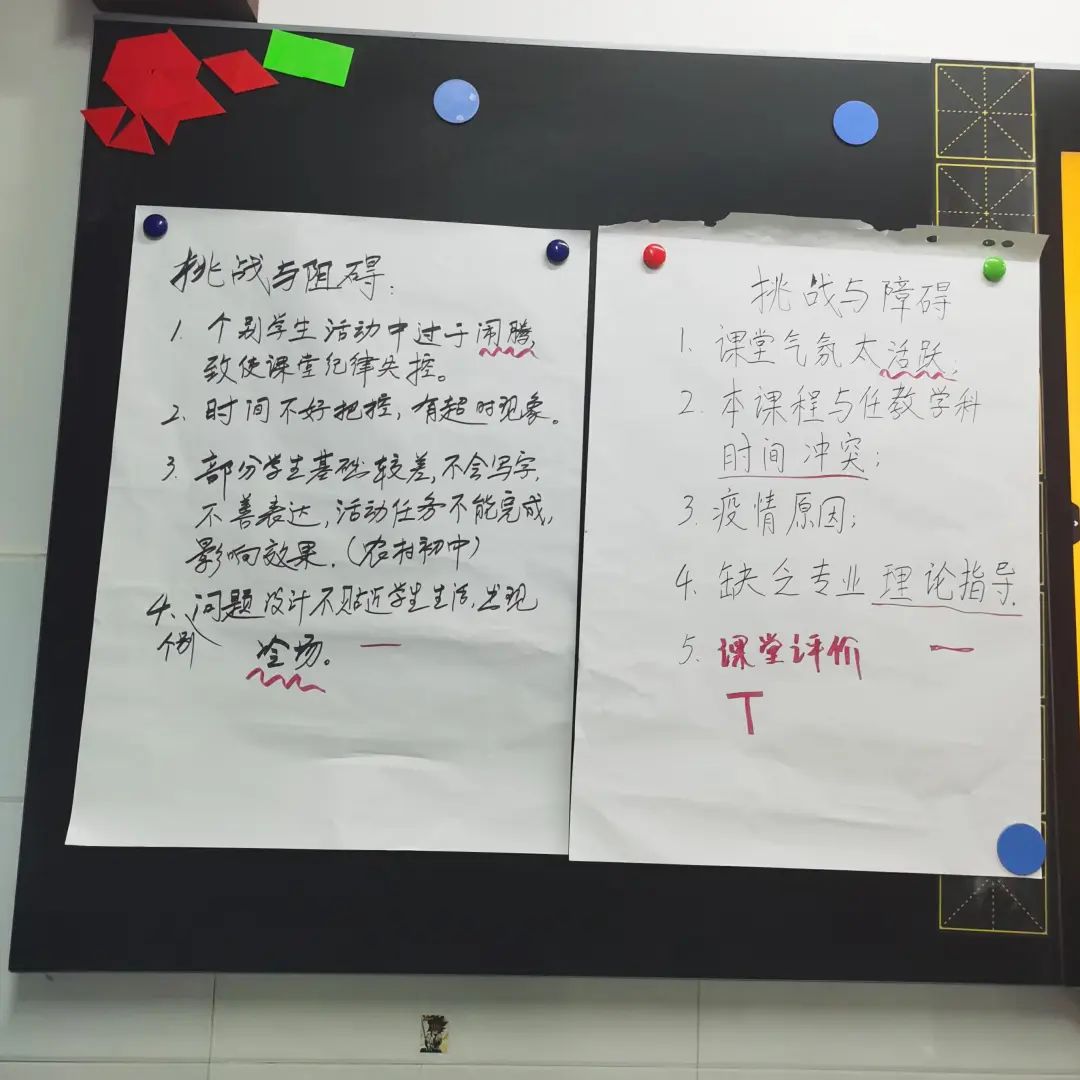 挑战与阻碍:
1. 个别学生活动中过于闹腾,
致使课堂纪律失控。
2. 时间不好把控,有超时现象。
3. 部分学生基础较差,不会写字,
不善表达,活动任务不能完成,
影响效果.(农村初中)
4. 问题设计不贴近学生生活,出现
个别
冷场。
挑战与障碍
1. 课堂气氛太活跃;
2. 本课程与任教学科
时间冲突;
3. 疫情原因;
4. 缺乏专业理论指导.
5. 课堂评价
T